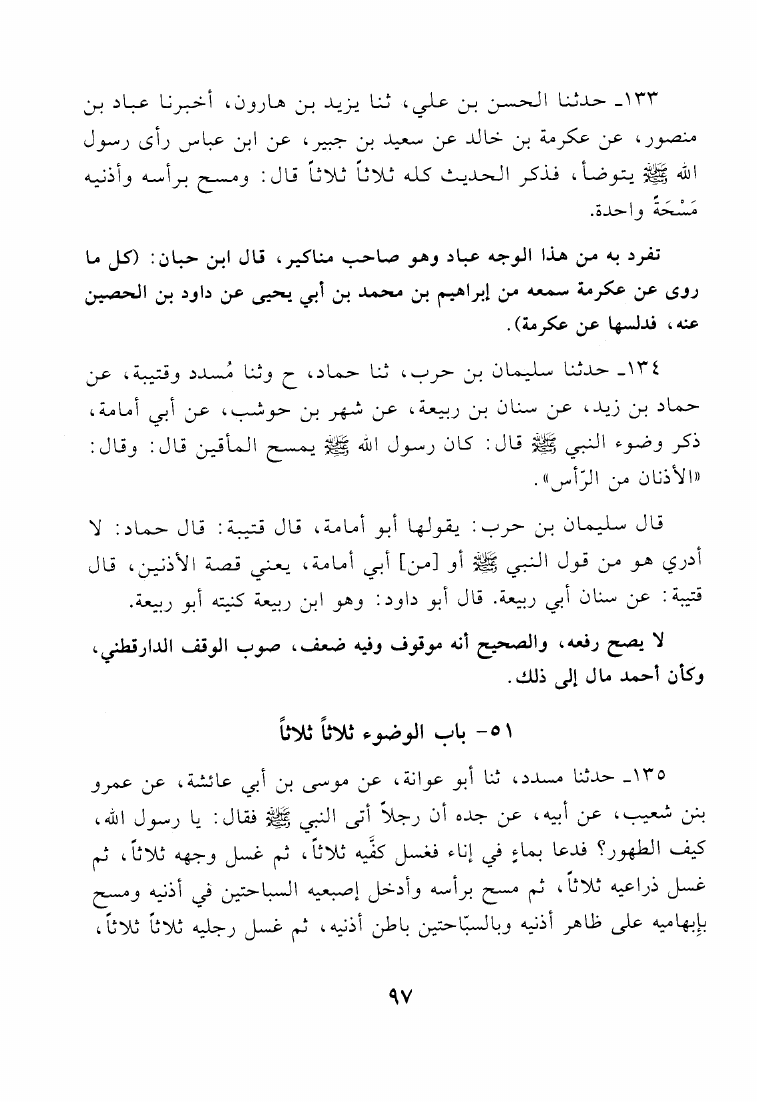 ١٣٣ـ حدثنا الحسن بن علي، ثنا يزيد بن هارون، أخبرنا عباد بن
منصور، عن عكرمة بن خالد عن سعيد بن جبير، عن ابن عباس رأى رسول
الله ﷺ يتوضأ، فذكر الحديث كله ثلاثاً ثلاثاً قال: ومسح برأسه وأذنيه
مَسْحَةً واحدة.
تفرد به من هذا الوجه عباد وهو صاحب مناكير، قال ابن حبان: (كل ما
روى عن عكرمة سمعه من إبراهيم بن محمد بن أبي يحيى عن داود بن الحصين
عنه، فدلسها عن عكرمة).
١٣٤ـ حدثنا سليمان بن حرب، ثنا حماد، ح وثنا مُسدد وقتيبة، عن
حماد بن زيد، عن سنان بن ربيعة، عن شهر بن حوشب، عن أبي أمامة،
ذكر وضوء النبي ﷺ قال: كان رسول الله ﷺ يمسح المأقين قال: وقال:
«الأذنان من الرّأس».
قال سليمان بن حرب: يقولها أبو أمامة، قال قتيبة: قال حماد: لا
أدري هو من قول النبي ﷺ أو [من] أبي أمامة، يعني قصة الأذنين، قال
قتيبة: عن سنان أبي ربيعة. قال أبو داود: وهو ابن ربيعة كنيته أبو ربيعة.
لا يصح رفعه، والصحيح أنه موقوف وفيه ضعف، صوب الوقف الدارقطني،
وكأن أحمد مال إلى ذلك.
٥١- باب الوضوء ثلاثاً ثلاثاً
١٣٥ـ حدثنا مسدد، ثنا أبو عوانة، عن موسى بن أبي عائشة، عن عمرو
بنن شعيب، عن أبيه، عن جده أن رجلاً أتى النبي ﷺ فقال: يا رسول الله،
كيف الطهور؟ فدعا بماءٍ في إناء فغسل كفَّيه ثلاثاً، ثم غسل وجهه ثلاثاً، ثم
غسل ذراعيه ثلاثاً، ثم مسح برأسه وأدخل إصبعيه السباحتين في أذنيه ومسح
بإبهاميه على ظاهر أذنيه وبالسبّاحتين باطن أذنيه، ثم غسل رجليه ثلاثاً ثلاثاً،
٩٧